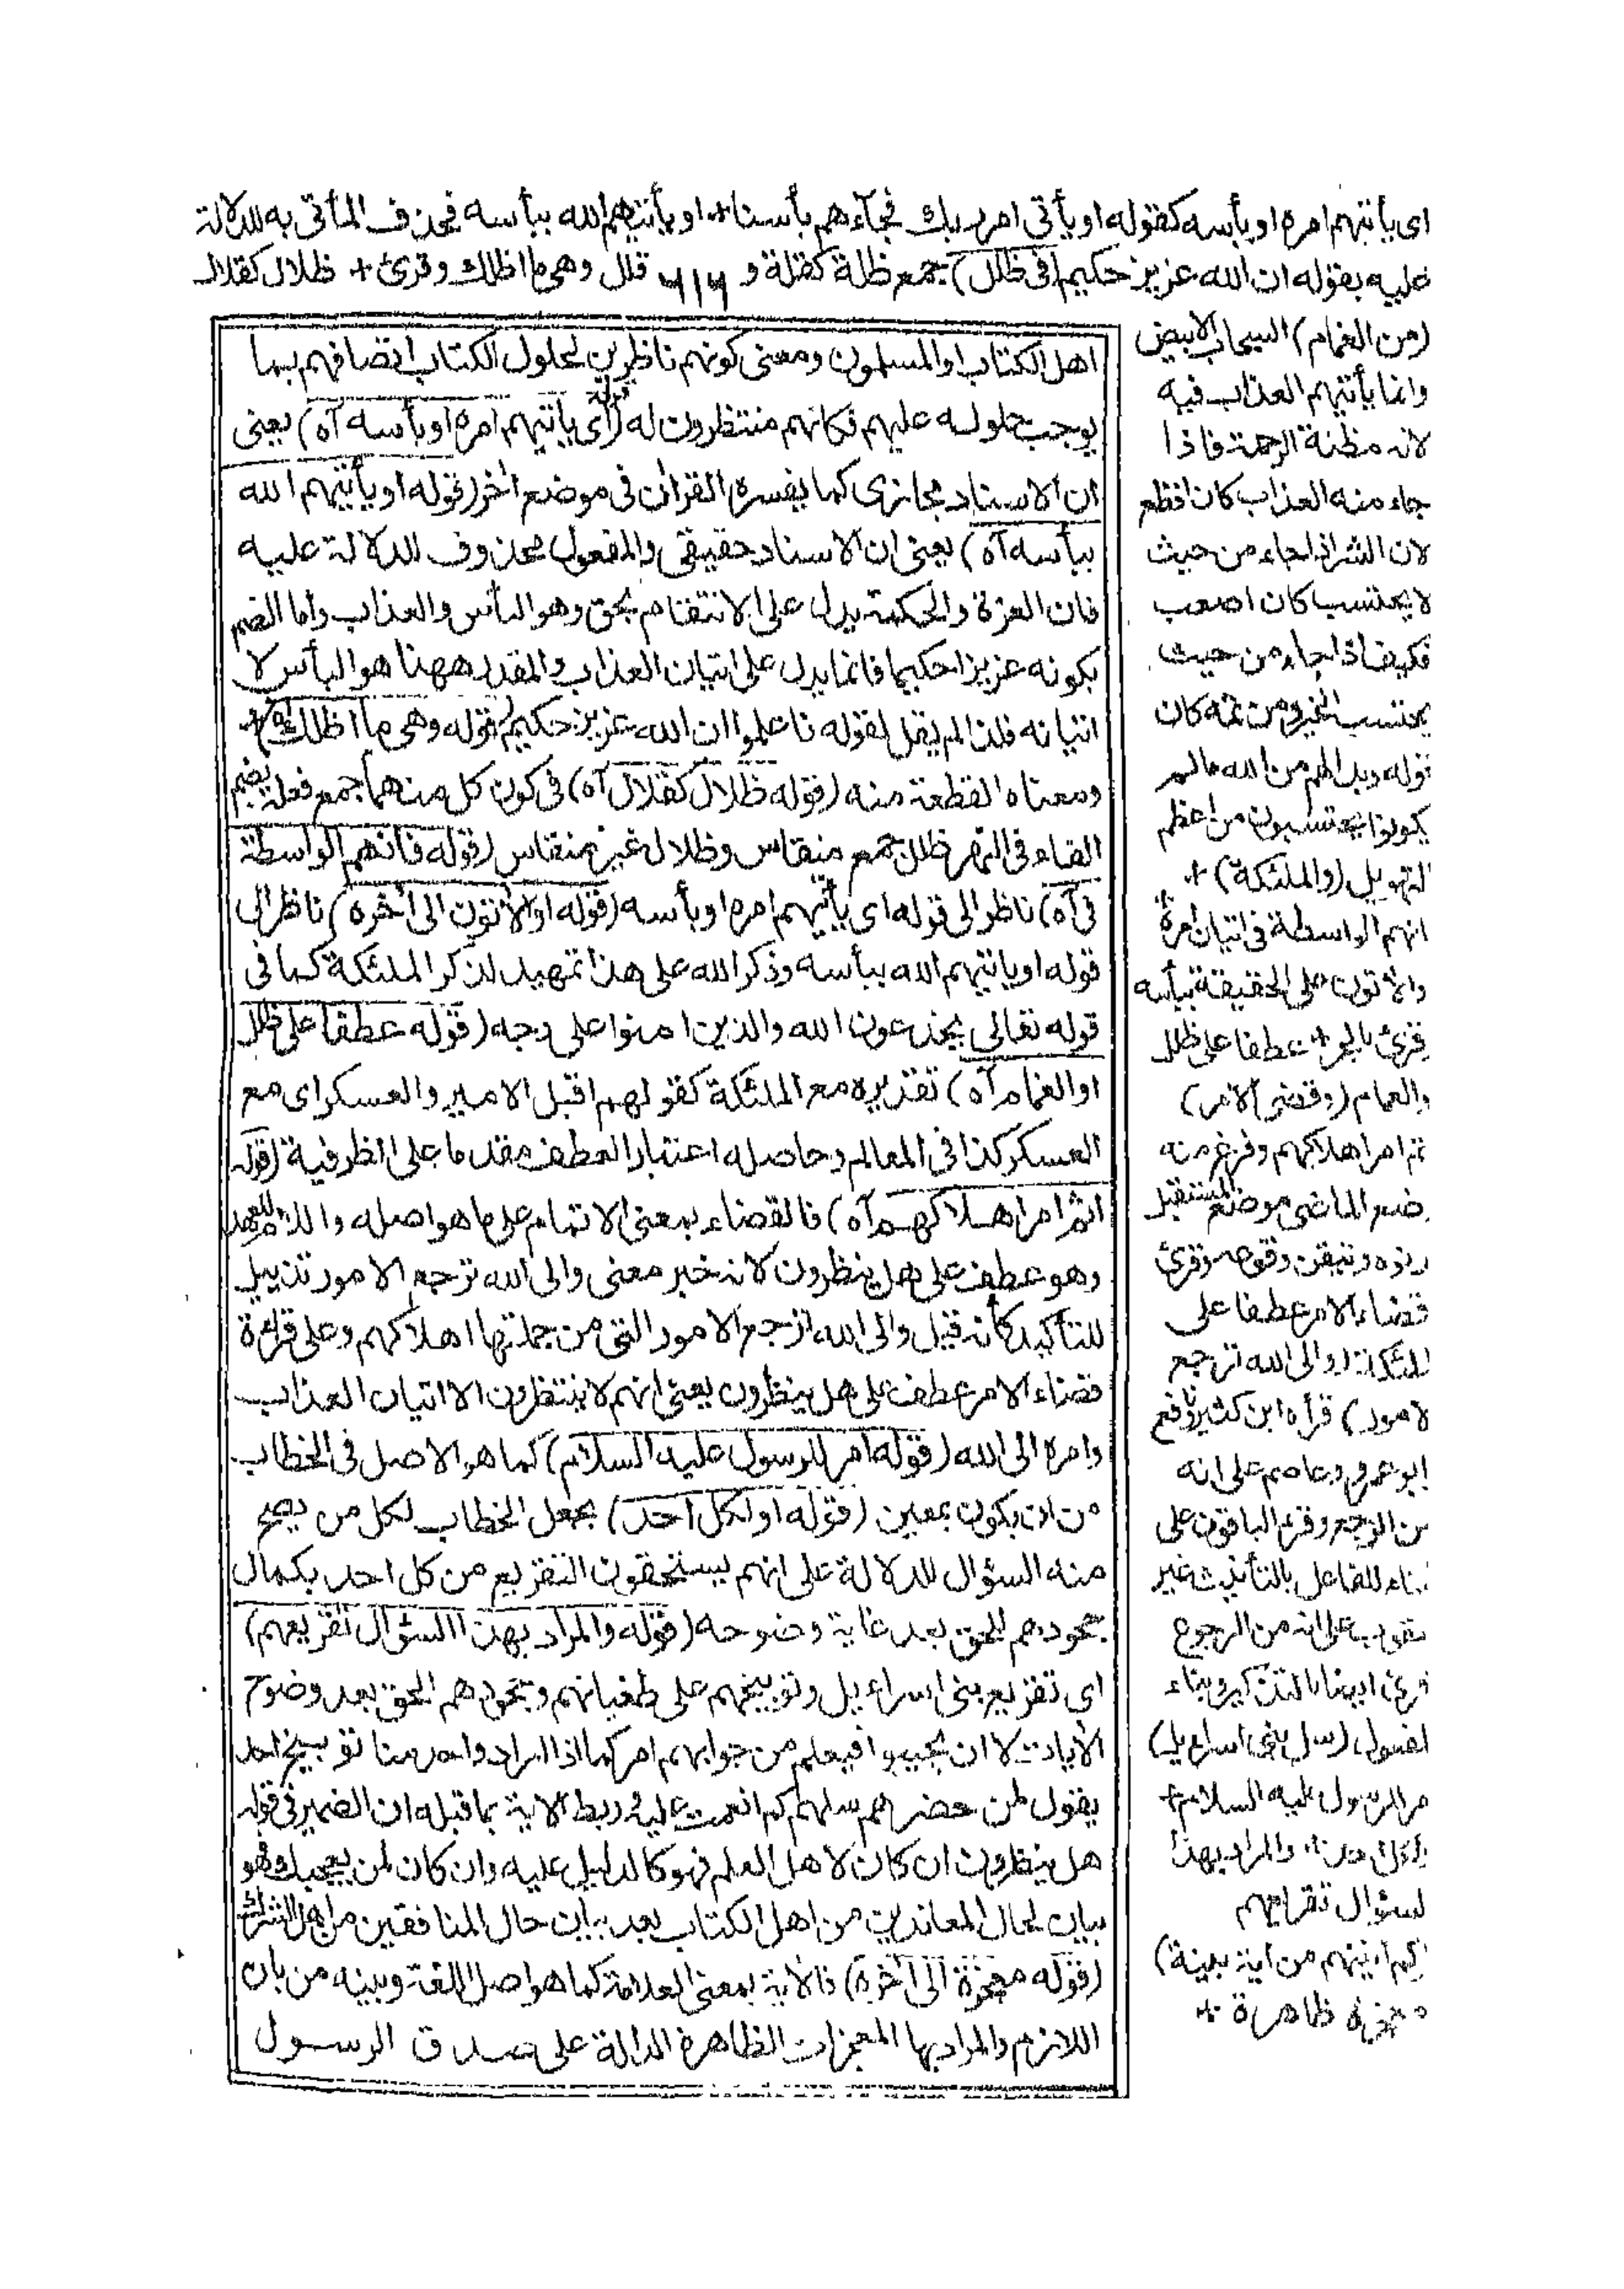 اى يأتيهم امره او بأسه كقوله او يأتى امر ربك فجآءهم بأسنا+ او يأتيهم الله ببأسه فحذف المأتى به للدلالة
عليه بقوله ان الله عزيز حكيم (فى ظلل) جمع ظلة كقلة و قلل وهى ما اظلك وقرئ + ظلال كقلال
(من الغمام) السحاب الابيض
وانما يأتيهم العذاب فيه
لانه مظنة الرحمة فاذا
جاء منه العذاب كان افظع
لان الشر اذا جاء من حيث
لا يحتسب كان اصعب
فكيف اذا جاء من حيث
يحتسب الخير ومن ثمه كان
قوله وبدا لهم من الله ما لم
يكونوا يحتسبون من اعظم
التهويل (والملئكة) +
انهم الواسطة فى اتيان امره
والاتون على الحقيقة ببأسه
وقرئ بالجر+ عطفا على ظلل
والغمام (وقضى الامر)
تم امر اهلاكهم وفرغ منه
ضع الماضى موضع المستقبل
دنوه وتيقن وقوعه وقرئ
قضاء الامر عطفا على
لملئكة (والى الله ترجع
لامور) قرأه ابن كثير ونافع
ابو عمرو وعاصم على انه
من الرجع وقرء الباقون على
بناء للفاعل بالتأنيث غير
يعقوب على انه من الرجوع
قرئ ايضا بالتذكير وبناء
لمفعول (سل بنى اسراءيل)
مر للرسول عليه السلام+
لكل احد+ والمراد بهذا
لسؤال تقريعهم
كم اتينهم من اية بينة)
معجزة ظاهرة +
اهل الكتاب او المسلمون ومعنى كونهم ناظرين لحلول الكتاب اتصافهم بما
يوجب حلوله عليهم فكانهم منتظرون له (قوله اى يأتيهم امره او بأسه آه) يعنى
ان الاسناد مجازى كما يفسره القرآن فى موضع اخر (قوله او يأتيهم الله
ببأسه آه) يعنى ان الاسناد حقيقى والمفعول محذوف للدلالة عليه
فان العزة والحكمة يدل على الانتقام بحق وهو البأس والعذاب واما الضم
بكونه عزيزا حكيما فانما يدل على اتيان العذاب والمقدر ههنا هو البأس لا
اتيانه فلذا لم يقل لقوله فاعلموا ان الله عزيز حكيم (قوله وهى ما اظلك آه)+
ومعناه القطعة منه (قوله ظلال كقلال آه) فى كون كل منهما جمع فعلة بضم
الفاء فى النهر ظلل جمع منقاس وظلال غير منقاس (قوله فانهم الواسطة
فى آه) ناظر الى قوله اى يأتيهم امره او بأسه (قوله او الاتون الى آخره) ناظر الى
قوله او يأتيهم الله ببأسه وذكر الله على هذا تمهيد لذكر الملئكة كما فى
قوله تعالى يخدعون الله والذين امنوا على وجه (قوله عطفا على ظلل
او الغمام آه) تقديره مع الملئكة كقولهم اقبل الامير والعسكر اى مع
العسكر كذا فى المعالم وحاصله اعتبار العطف مقدما على الظرفية (قوله
اتم امر اهلاكهم آه) فالقضاء بمعنى الاتمام على ما هو اصله واللام للعهد
وهو عطف على هل ينظرون لانه خبر معنى والى الله ترجع الامور تذييل
للتأكيد كأنه قيل والى الله ترجع الامور التى من جملتها اهلاكهم وعلى قراءة
قضاء الامر عطف على هل ينظرون يعنى انهم لا ينتظرون الا اتيان العذاب
وامره الى الله (قوله امر للرسول عليه السلام) كما هو الاصل فى الخطاب
من ان يكون بمعين (قوله او لكل احد) بجعل الخطاب لكل من يصح
منه السؤال للدلالة على انهم يستحقون التقريع من كل احد بكمال
جحودهم للحق بعد غاية وضوحه (قوله والمراد بهذا السؤال تقريعهم)
اى تقريع بنى اسراءيل وتوبيخهم على طغيانهم وجحودهم الحق بعد وضوح
الايات لا ان يجيبوا فيعلم من جوابهم امر كما اذا اراد واحد منا توبيخ احد
يقول لمن حضر هم سلهم كم انعمت عليه وربط الاية بما قبله ان الضمير فى قوله
هل ينظرون ان كان لاهل العلم فهو كالدليل عليه وان كان لمن يعجبك فهو
بيان لحال المعاندين من اهل الكتاب بعد بيان حال المنافقين من اهل الشرك
(قوله معجزة الى آخره) فالاية بمعنى العلامة كما هو اصل اللغة وبينه من بان
اللازم والمراد بها المعجزات الظاهرة الدالة على صدق الرسول